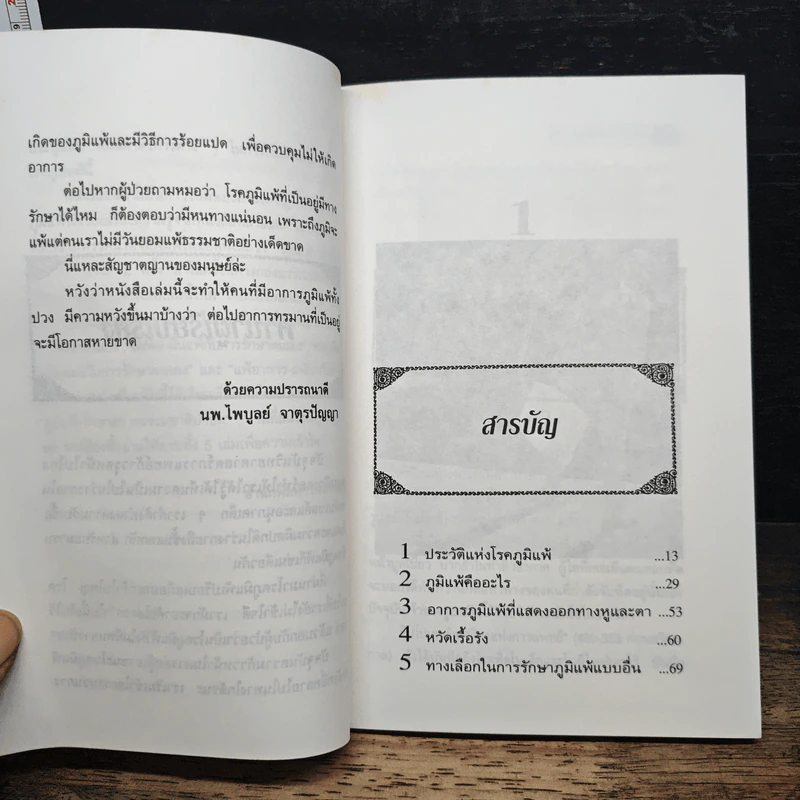 เกิดของภูมิแพ้และมีวิธีการร้อยแปด เพื่อควบคุมไม่ให้เกิด
อาการ
ต่อไปหากผู้ป่วยถามหมอว่า โรคภูมิแพ้ที่เป็นอยู่มีทาง
รักษาได้ไหม ก็ต้องตอบว่ามีหนทางแน่นอน เพราะถึงภูมิจะ
แพ้แต่คนเราไม่มีวันยอมแพ้ธรรมชาติอย่างเด็ดขาด
นี่แหละสัญชาตญานของมนุษย์ล่ะ
หวังว่าหนังสือเล่มนี้จะทำให้คนที่มีอาการภูมิแพ้ทั้ง
ปวง มีความหวังขึ้นมาบ้างว่า ต่อไปอาการทรมานที่เป็นอยู่
จะมีโอกาสหายขาด
ด้วยความปรารถนาดี
นพ.ไพบูลย์ จาตุรปัญญา
สารบัญ
1 ประวัติแห่งโรคภูมิแพ้ ...13
2 ภูมิแพ้คืออะไร ...29
3 อาการภูมิแพ้ที่แสดงออกทางหูและตา ...53
4 หวัดเรื้อรัง ...60
5 ทางเลือกในการรักษาภูมิแพ้แบบอื่น ...69